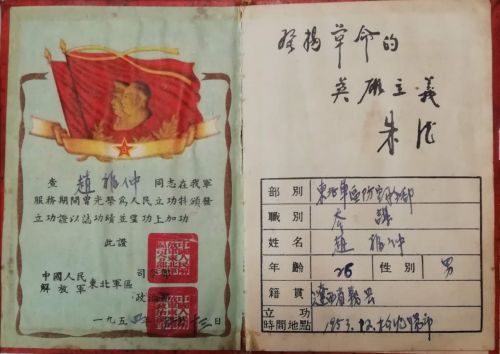 查 趙 仲 同志在我軍
服務期間曾光榮爲人民立功特頒發
立功證以誌功績並望功上加功
此證
中國人民
解放軍 東北軍區
司令
政治
一九五四年 十三日
發揚革命的
英雄主義
朱德
部別 東北軍區防空司令部
職別 參謀
姓名 趙 仲
年齡 26 性別 男
籍貫 遼西省義县
立功時間地點 1953.12.